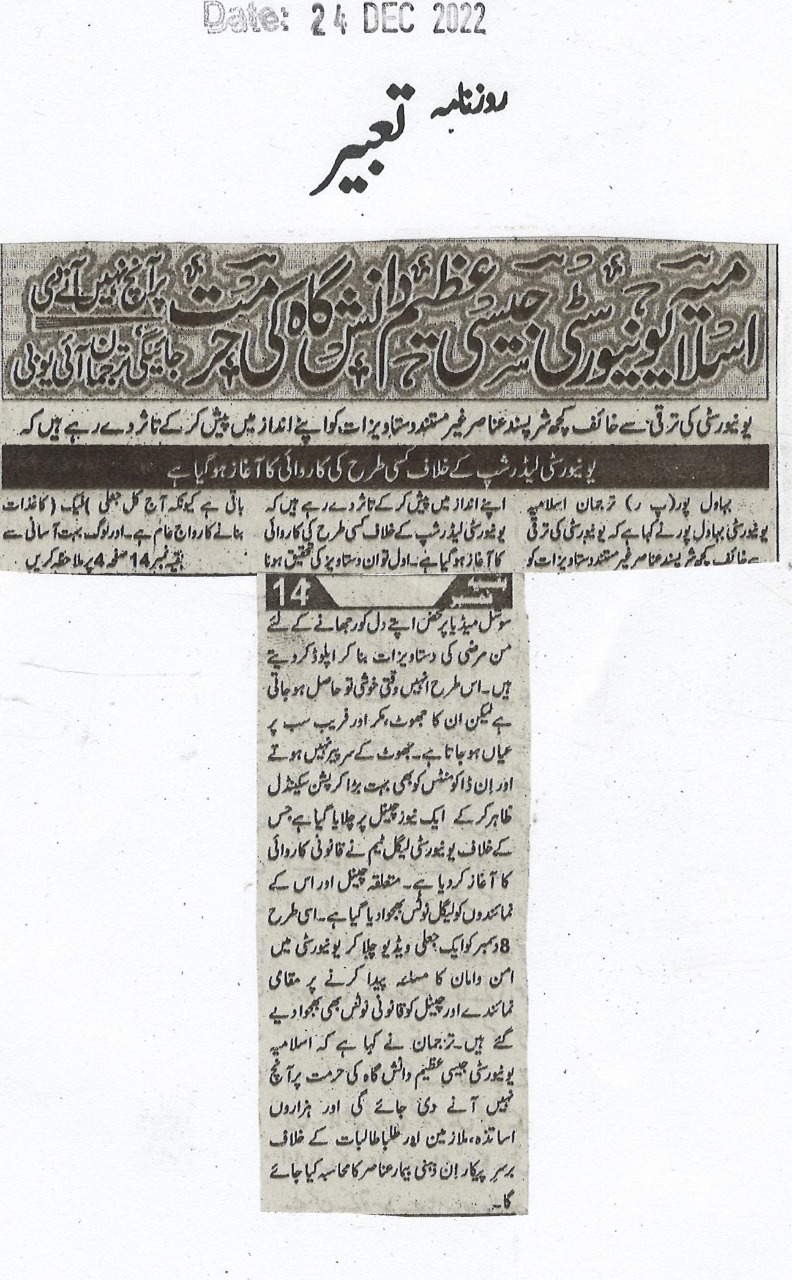 Date: 24 DEC 2022
روزنامہ تعبیر
اسلامیہ یونیورسٹی جیسی عظیم دانش گاہ کی حرمت پر آنچ نہیں آنے دی
جائیگی، ترجمان آئی یو بی
یونیورسٹی کی ترقی سے خائف کچھ شرپسند عناصر غیر مستند دستاویزات کو اپنے انداز میں پیش کر کے تاثر دے رہے ہیں کہ
یونیورسٹی لیڈر شپ کے خلاف کسی طرح کی کاروائی کا آغاز ہو گیا ہے
بہاول پور(پ ر) ترجمان اسلامیہ
یونیورسٹی بہاول پور نے کہا ہے کہ یونیورسٹی کی ترقی
سے خائف کچھ شرپسند عناصر غیر مستند دستاویزات کو
اپنے انداز میں پیش کر کے تاثر دے رہے ہیں کہ
یونیورسٹی لیڈر شپ کے خلاف کسی طرح کی کاروائی
کا آغاز ہو گیا ہے۔ اول تو ان دستاویز کی تحقیق ہونا
باقی ہے کیونکہ آج کل جعلی (فیک) کاغذات
بنانے کا رواج عام ہے۔ اور لوگ بہت آسانی سے
بقیہ نمبر 14 صفحہ 4 پر ملاحظہ کریں
بقیہ نمبر 14
سوشل میڈیا پر محض اپنے دل کو رجھانے کے لئے
من مرضی کی دستاویزات بنا کر اپلوڈ کر دیتے
ہیں۔ اس طرح انہیں وقتی خوشی تو حاصل ہو جاتی
ہے لیکن ان کا جھوٹ، مکر اور فریب سب پر
عیاں ہو جاتا ہے۔ جھوٹ کے سر پیر نہیں ہوتے
اور ان ڈاکومنٹس کو بھی بہت بڑا کرپشن سکینڈل
ظاہر کر کے ایک نیوز چینل پر چلایا گیا ہے جس
کے خلاف یونیورسٹی لیگل ٹیم نے قانونی کاروائی
کا آغاز کر دیا ہے۔ متعلقہ چینل اور اس کے
نمائندوں کو لیگل نوٹس بھجوا دیا گیا ہے۔ اسی طرح
8 دسمبر کو ایک جعلی ویڈیو چلا کر یونیورسٹی میں
امن وامان کا مسئلہ پیدا کرنے پر مقامی
نمائندے اور چینل کو قانونی نوٹس بھی بھجوا دیے
گئے ہیں۔ ترجمان نے کہا ہے کہ اسلامیہ
یونیورسٹی جیسی عظیم دانش گاہ کی حرمت پر آنچ
نہیں آنے دی جائے گی اور ہزاروں
اساتذہ، ملازمین اور طلباطالبات کے خلاف
برسر پیکار ان ذہنی بیمار عناصر کا محاسبہ کیا جائے
گا۔